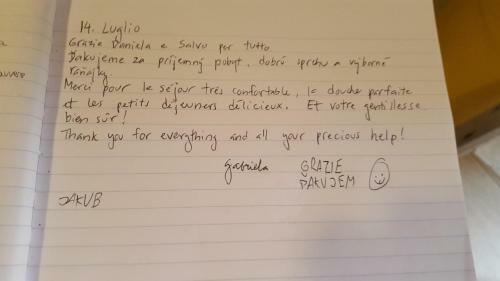 14. Luglio
Grazie Daniela e Salvo per tutto
Ďakujeme za príjemný pobyt, dobrú sprchu a výborné
raňajky.
Merci pour le séjour très confortable, la douche parfaite
et les petits déjeuners délicieux. Et votre gentillesse
bien sûr!
Thank you for everything and all your precious help!
Gabriela
GRAZIE
ĎAKUJEM
JAKUB